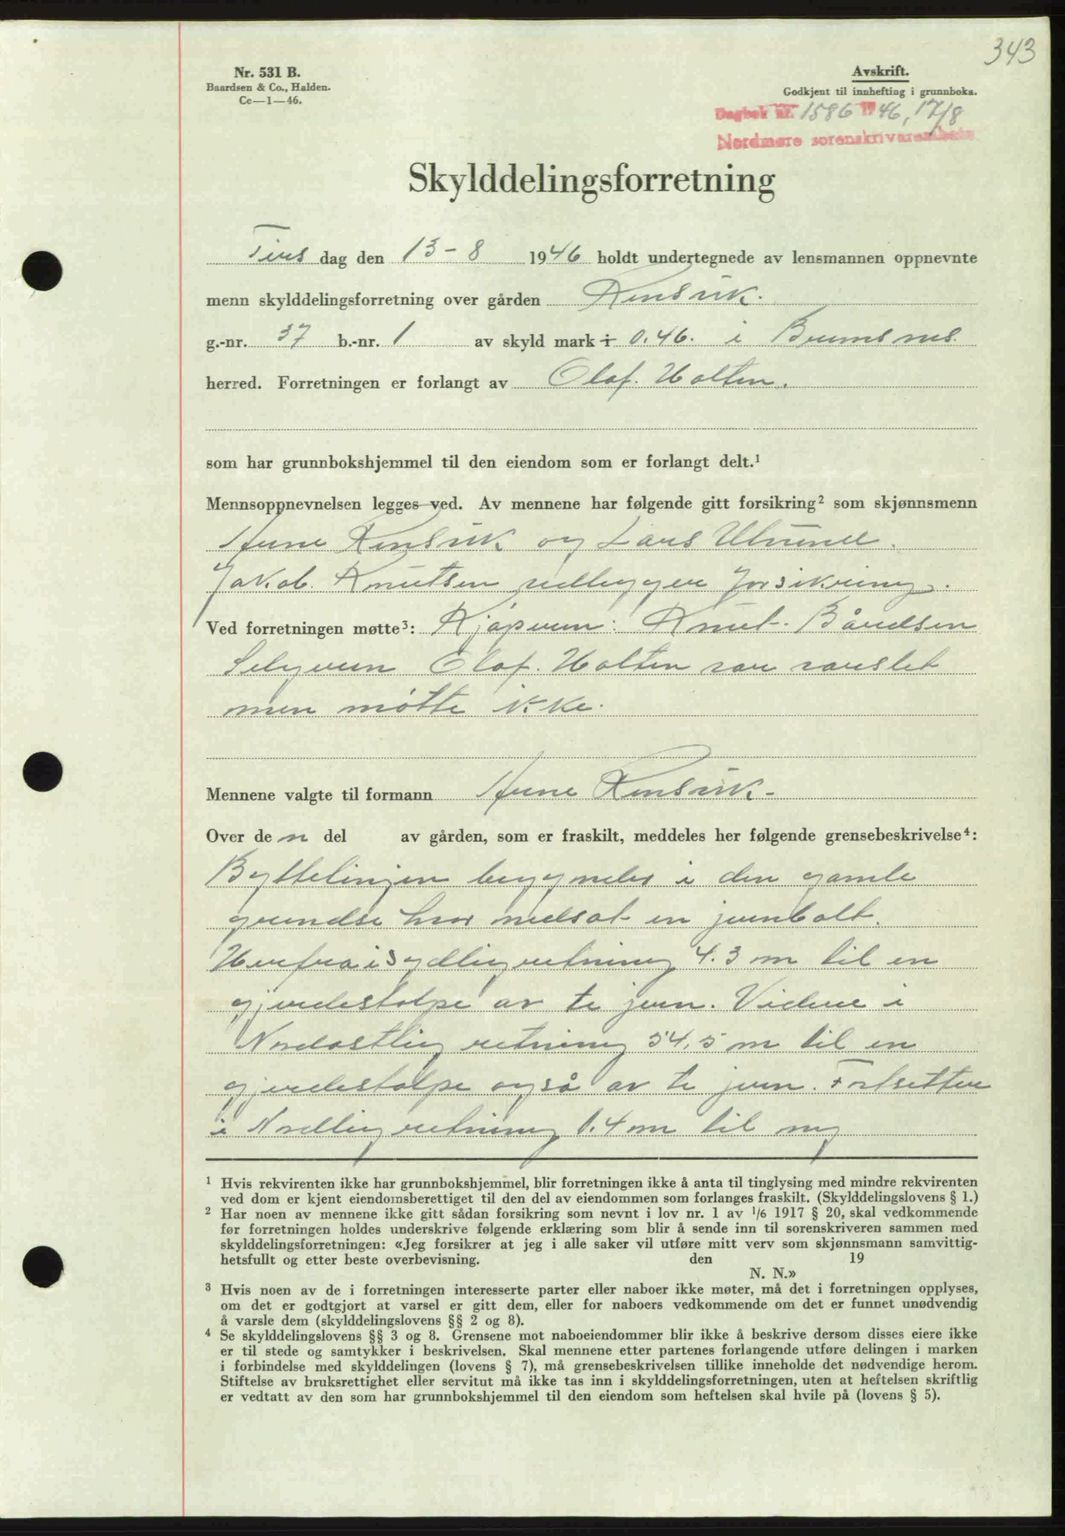 343
Nr. 531 B.
Baardsen & Co., Halden.
Cc—1—46.
Avskrift.
Godkjent til innhefting i grunnboka.
Dagbok nr. 1586 1946, 17/8
Nordmøre sorenskriverembete
Skylddelingsforretning
Tirs dag den 13-8 1946 holdt undertegnede av lensmannen oppnevnte
menn skylddelingsforretning over gården Rensvik.
g.-nr. 37 b.-nr. 1 av skyld mark 0.46. i Bremsnes
herred. Forretningen er forlangt av Olaf. Holten.
som har grunnbokshjemmel til den eiendom som er forlangt delt.¹
Mennsoppnevnelsen legges ved. Av mennene har følgende gitt forsikring² som skjønnsmenn
Arne Rensvik og Lars
Jakob. Knutsen vedlegger forsikring.
Ved forretningen møtte³: Kjøperen: Knut. Bårdsen
Selgeren Olaf. Holten var varslet
men møtte ikke.
Mennene valgte til formann Arne Rensvik-
Over den del av gården, som er fraskilt, meddeles her følgende grensebeskrivelse⁴:
Byttelinjen begynder i den gamle
grendse hvor nedsat en jernbolt.
Herfra i sydlig retning 4.3 m til en
gjerdestolpe av te jern. Videre i
Nordostlig retning 54,5 m til en
gjerdestolpe også av te jern. Fortsetter
i Nordlig retning 1.4 m til ny
¹ Hvis rekvirenten ikke har grunnbokshjemmel, blir forretningen ikke å anta til tinglysing med mindre rekvirenten
ved dom er kjent eiendomsberettiget til den del av eiendommen som forlanges fraskilt. (Skylddelingslovens § 1.)
² Har noen av mennene ikke gitt sådan forsikring som nevnt i lov nr. 1 av 1/6 1917 § 20, skal vedkommende
før forretningen holdes underskrive følgende erklæring som blir å sende inn til sorenskriveren sammen med
skylddelingsforretningen: «Jeg forsikrer at jeg i alle saker vil utføre mitt verv som skjønnsmann samvittig-
hetsfullt og etter beste overbevisning. den 19
N. N.»
³ Hvis noen av de i forretningen interesserte parter eller naboer ikke møter, må det i forretningen opplyses,
om det er godtgjort at varsel er gitt dem, eller for naboers vedkommende om det er funnet unødvendig
å varsle dem (skylddelingslovens §§ 2 og 8).
⁴ Se skylddelingslovens §§ 3 og 8. Grensene mot naboeiendommer blir ikke å beskrive dersom disses eiere ikke
er til stede og samtykker i beskrivelsen. Skal mennene etter partenes forlangende utføre delingen i marken
i forbindelse med skylddelingen (lovens § 7), må grensebeskrivelsen tillike inneholde det nødvendige herom.
Stiftelse av bruksrettighet eller servitut må ikke tas inn i skylddelingsforretningen, uten at heftelsen skriftlig
er vedtatt av den som har grunnbokshjemmel til den eiendom som heftelsen skal hvile på (lovens § 5).